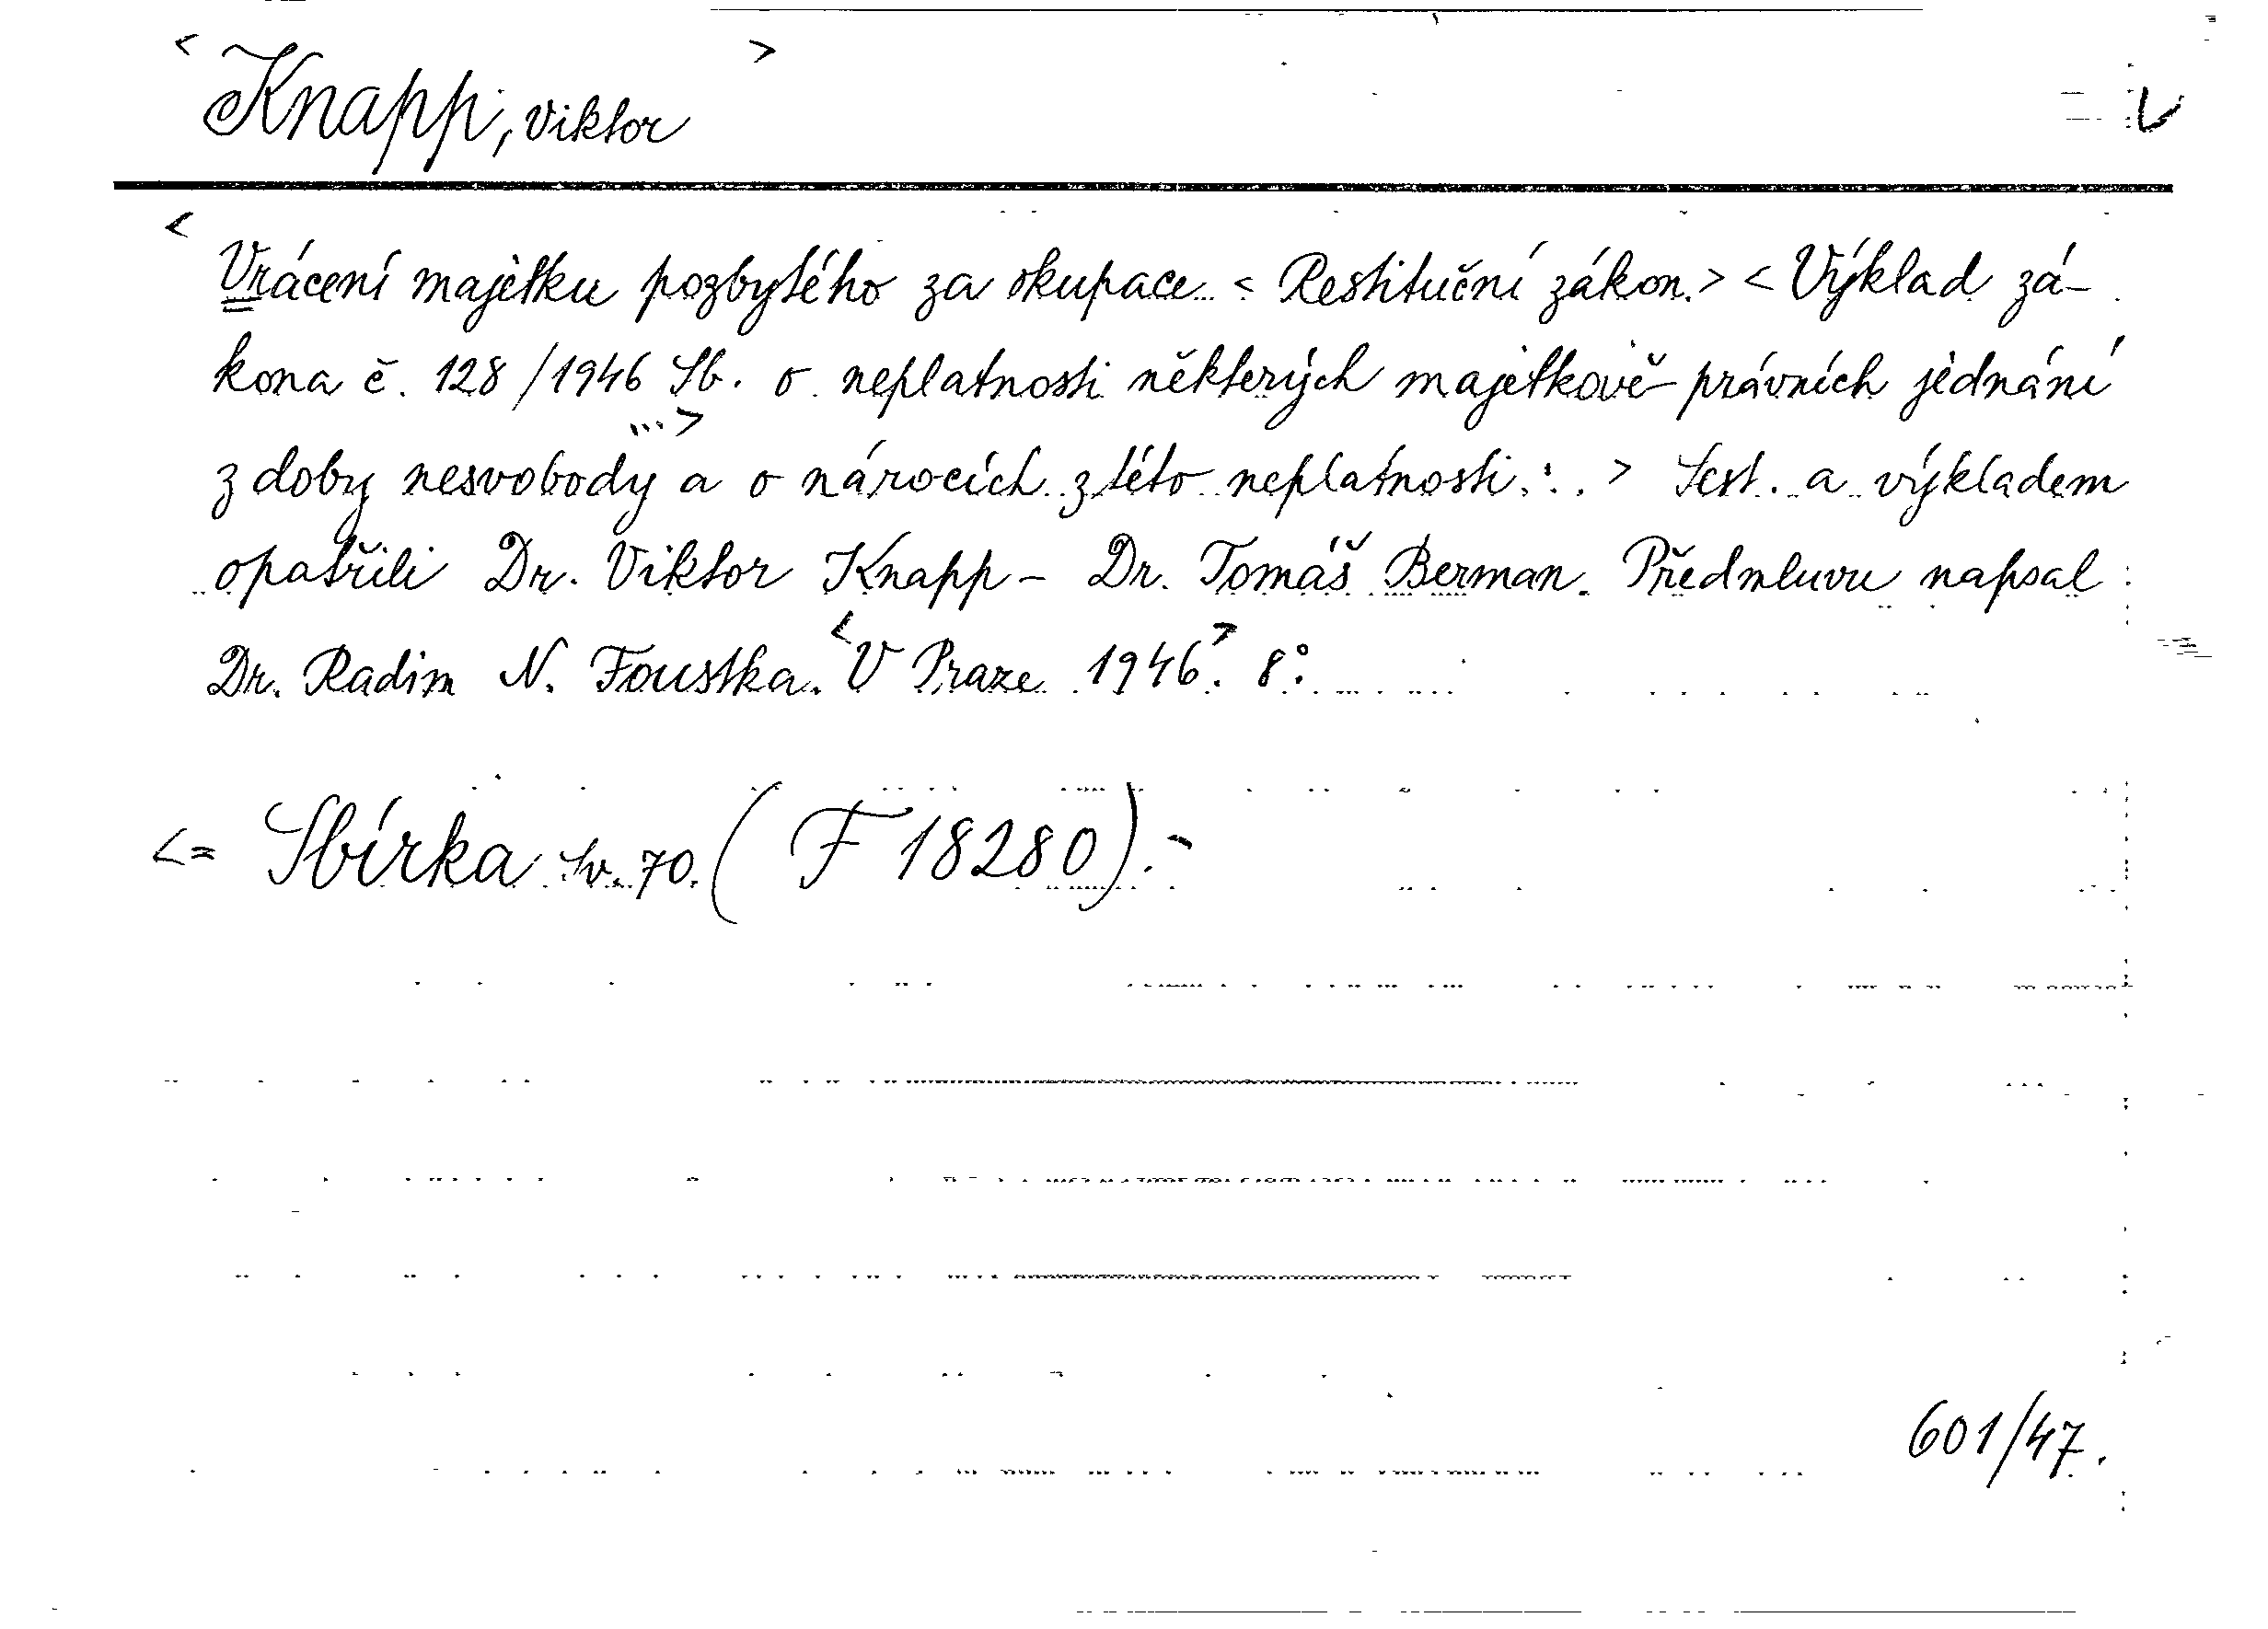 < Knapp, Viktor >
< Vrácení majetku pozbytého za okupace. < Restituční zákon. > < Výklad zá-
kona č. 128/1946 Sb. o neplatnosti některých majetkově-právních jednání
...>
z doby nesvobody a o nárocích z této neplatnosti... > Sest. a výkladem
opatřili Dr. Viktor Knapp - Dr. Tomáš Berman. Předmluvu napsal
Dr. Radim N. Foustka. < V Praze 1946 >. 8°.
<= Sbírka sv. 70. ( F 18280 ).-
601/47.